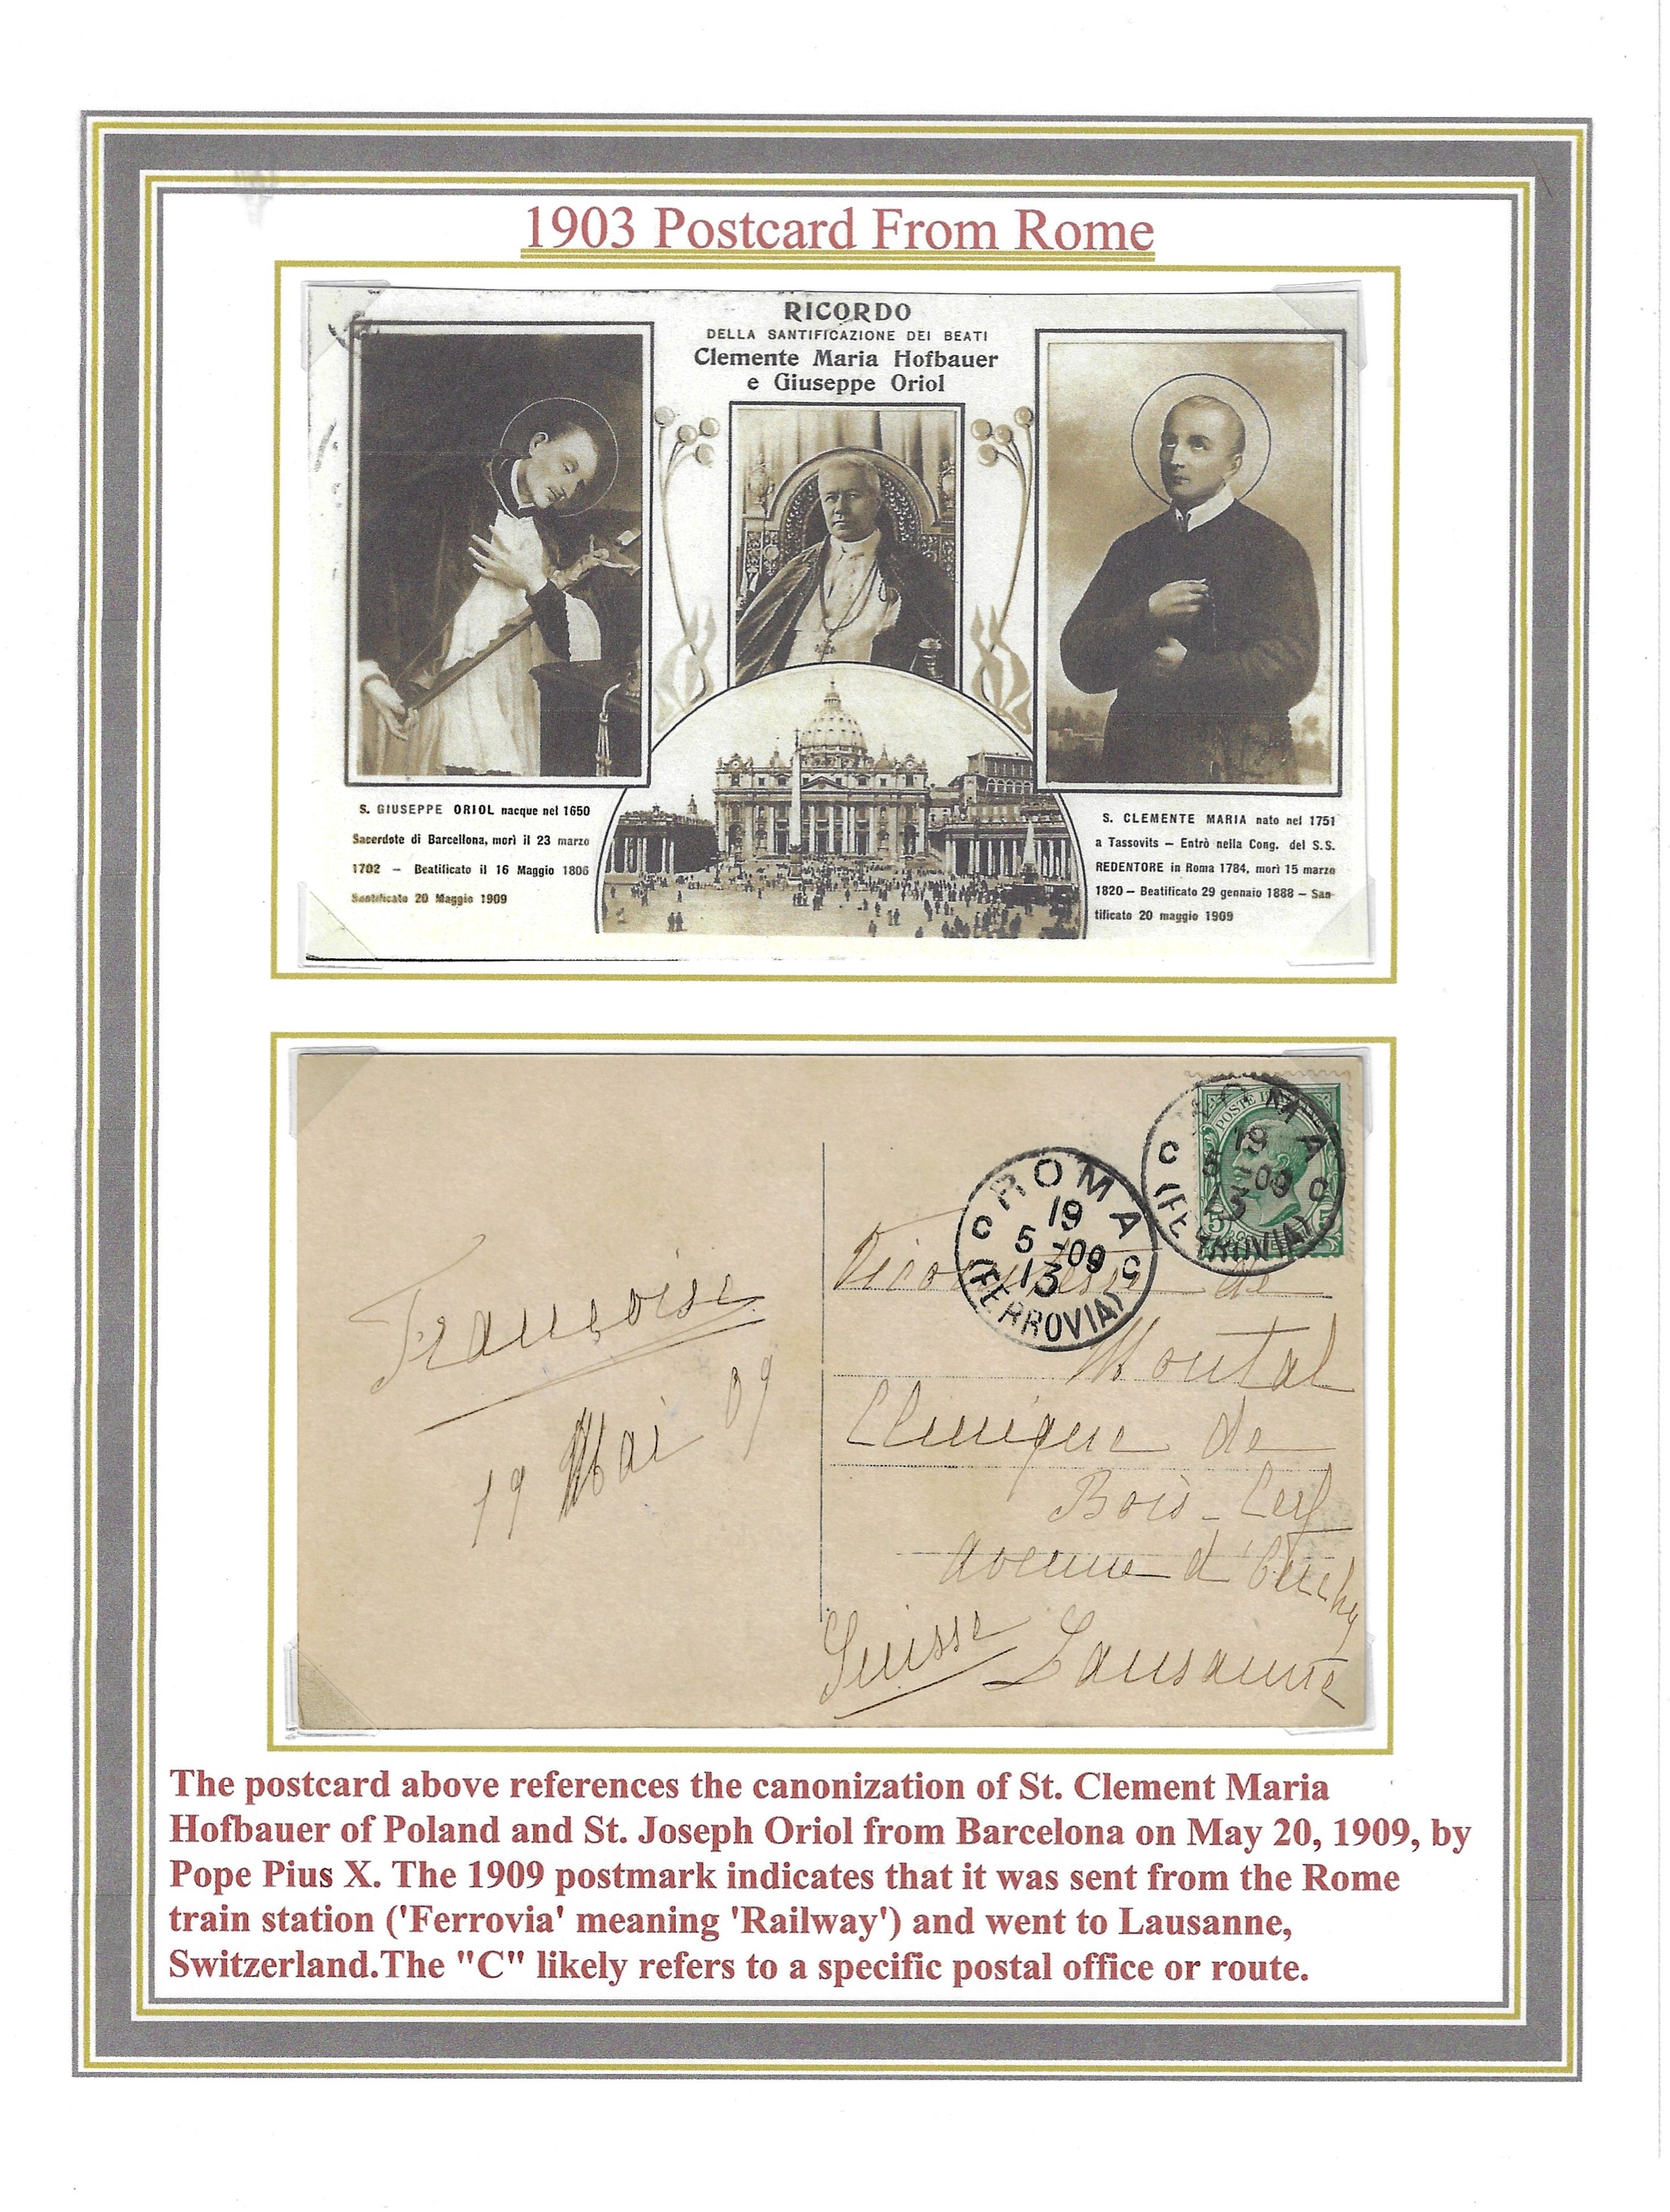 1903 Postcard From Rome
RICORDO
DELLA SANTIFICAZIONE DEI BEATI
Clemente Maria Hofbauer
e Giuseppe Oriol
S. GIUSEPPE ORIOL nacque nel 1650
Sacerdote di Barcellona, morì il 23 marzo
1702 – Beatificato il 16 Maggio 1806
Santificato 20 Maggio 1909
S. CLEMENTE MARIA nato nel 1751
a Tassovits – Entrò nella Cong. del S.S.
REDENTORE in Roma 1784, morì 15 marzo
1820 – Beatificato 29 gennaio 1888 – San-
tificato 20 maggio 1909
Françoise
19 Mai 09
POSTE
5 5
ROMA
19
5 -09
13
C C
(FERROVIA)
ROMA
19
5 -09
13
C C
(FERROVIA)
Vicomtesse de
Montal
Clinique de
Bois-Cerf
Avenue d'Ouchy
Suisse Lausanne
The postcard above references the canonization of St. Clement Maria
Hofbauer of Poland and St. Joseph Oriol from Barcelona on May 20, 1909, by
Pope Pius X. The 1909 postmark indicates that it was sent from the Rome
train station ('Ferrovia' meaning 'Railway') and went to Lausanne,
Switzerland.The "C" likely refers to a specific postal office or route.